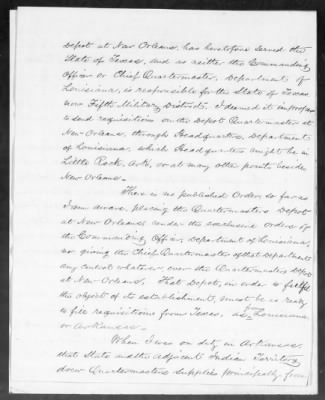 Depot at New Orleans, has heretofore served the
State of Texas, and as neither the Commanding
Officer or Chief Quartermaster, Department of
Louisiana, is responsible for the State of Texas
now Fifth Military District, I deemed it improper
to send requisitions on the Depot Quartermaster at
New Orleans, through Headquarters, Department
of Louisiana, which Headquarters might be in
Little Rock, Ark, or at many other points beside
New Orleans.
There is no published Order, so far as
I am aware, placing the Quartermasters Depot
at New Orleans under the exclusive orders of
the Commanding Officer, Department of Louisiana,
nor giving the Chief Quartermaster of that Department
any control whatever over the Quartermasters Depot
at New Orleans. That Depot, in order to fulfil
the object of its establishment, must be as ready
to fill requisitions from Texas, as from Louisiana
or Arkansas.
When I was on duty in Arkansas,
that State and the adjacent Indian Territory
drew Quartermasters supplies principally from